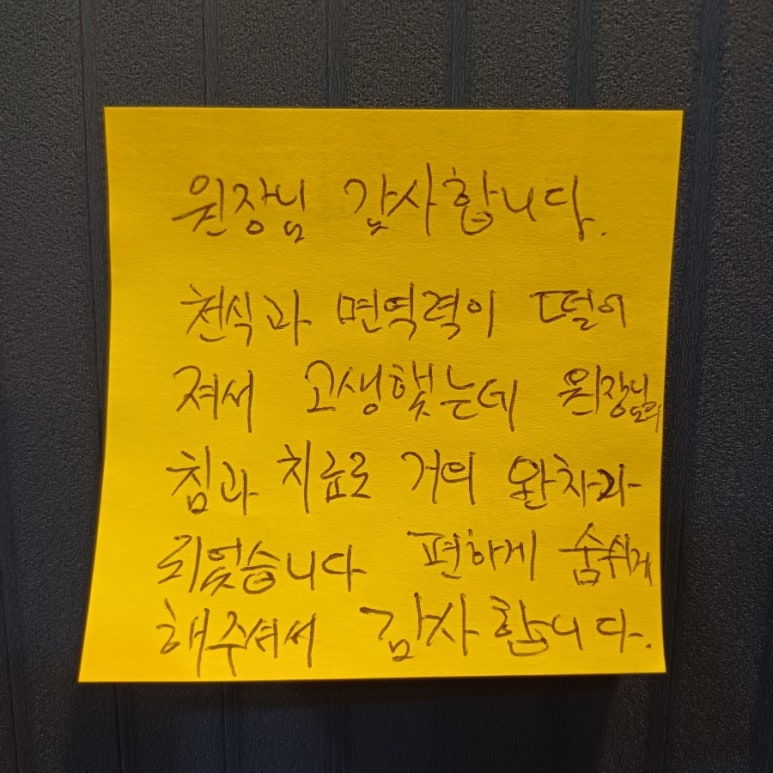 원장님 감사합니다.
천식과 면역력이 떨어
져서 고생했는데 원장님의
침과 치료로 거의 완차가
되었습니다 편하게 숨쉬게
해주셔서 감사합니다.